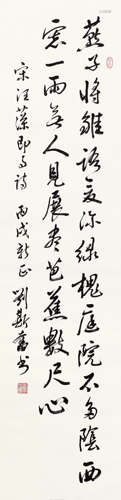 燕子將雛語夏深綠槐庭院不多陰西
窗一雨無人見展盡芭蕉數尺心
宋汪藻即事詩 丙戌新正 劉斯奮書